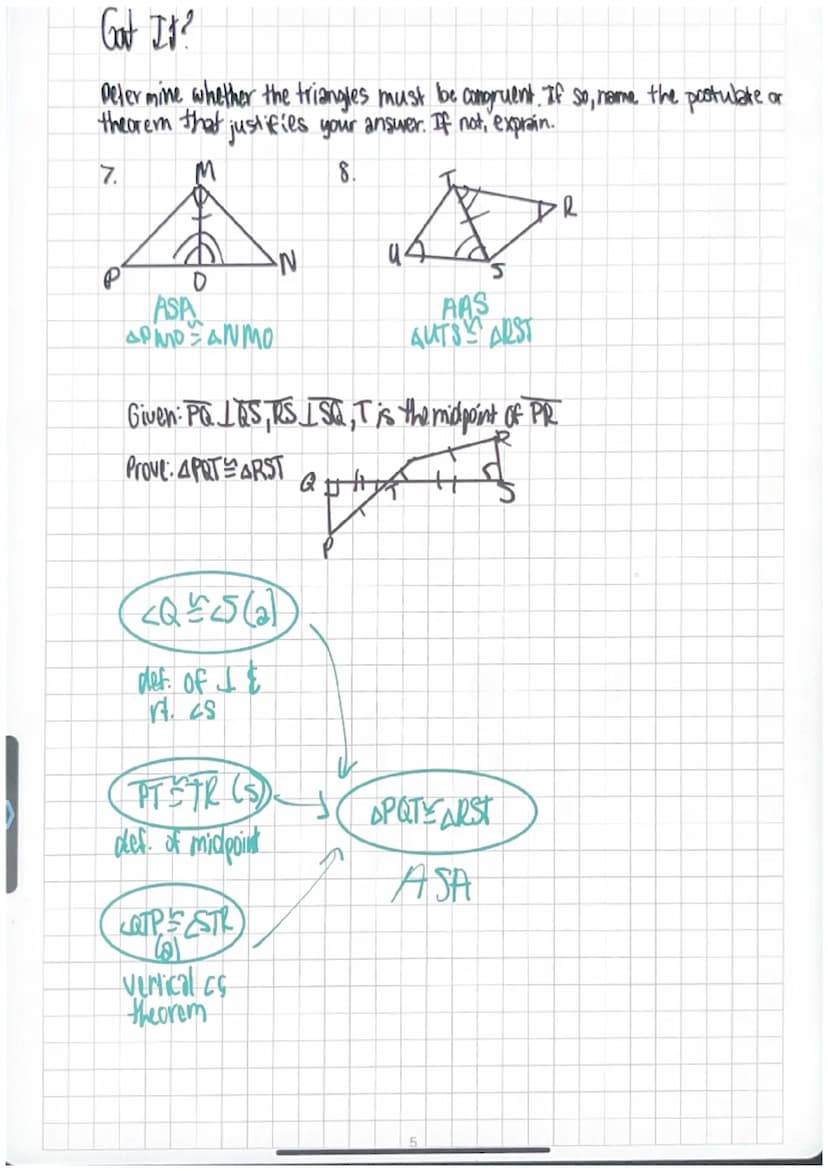 Got It?
Determine whether the triangles must be congruent. If so, name the postulate or
theorem that justifies your answer. If not, explain.
7.
M
P
O
N
ASA
△PMO ≅ △NMO
8.
T
R
U
S
AAS
△UTS ≅ △RST
Given: PQ ⊥ QS, RS ⊥ SQ, T is the midpoint of PR
Prove: △PQT ≅ △RST
R
Q
T
S
P
∠Q ≅ ∠S (a)
def. of ⊥ &
rt. ∠s
PT ≅ TR (s)
def. of midpoint
△PQT ≅ △RST
ASA
∠QTP ≅ ∠STR
(a)
vertical ∠s
theorem
5